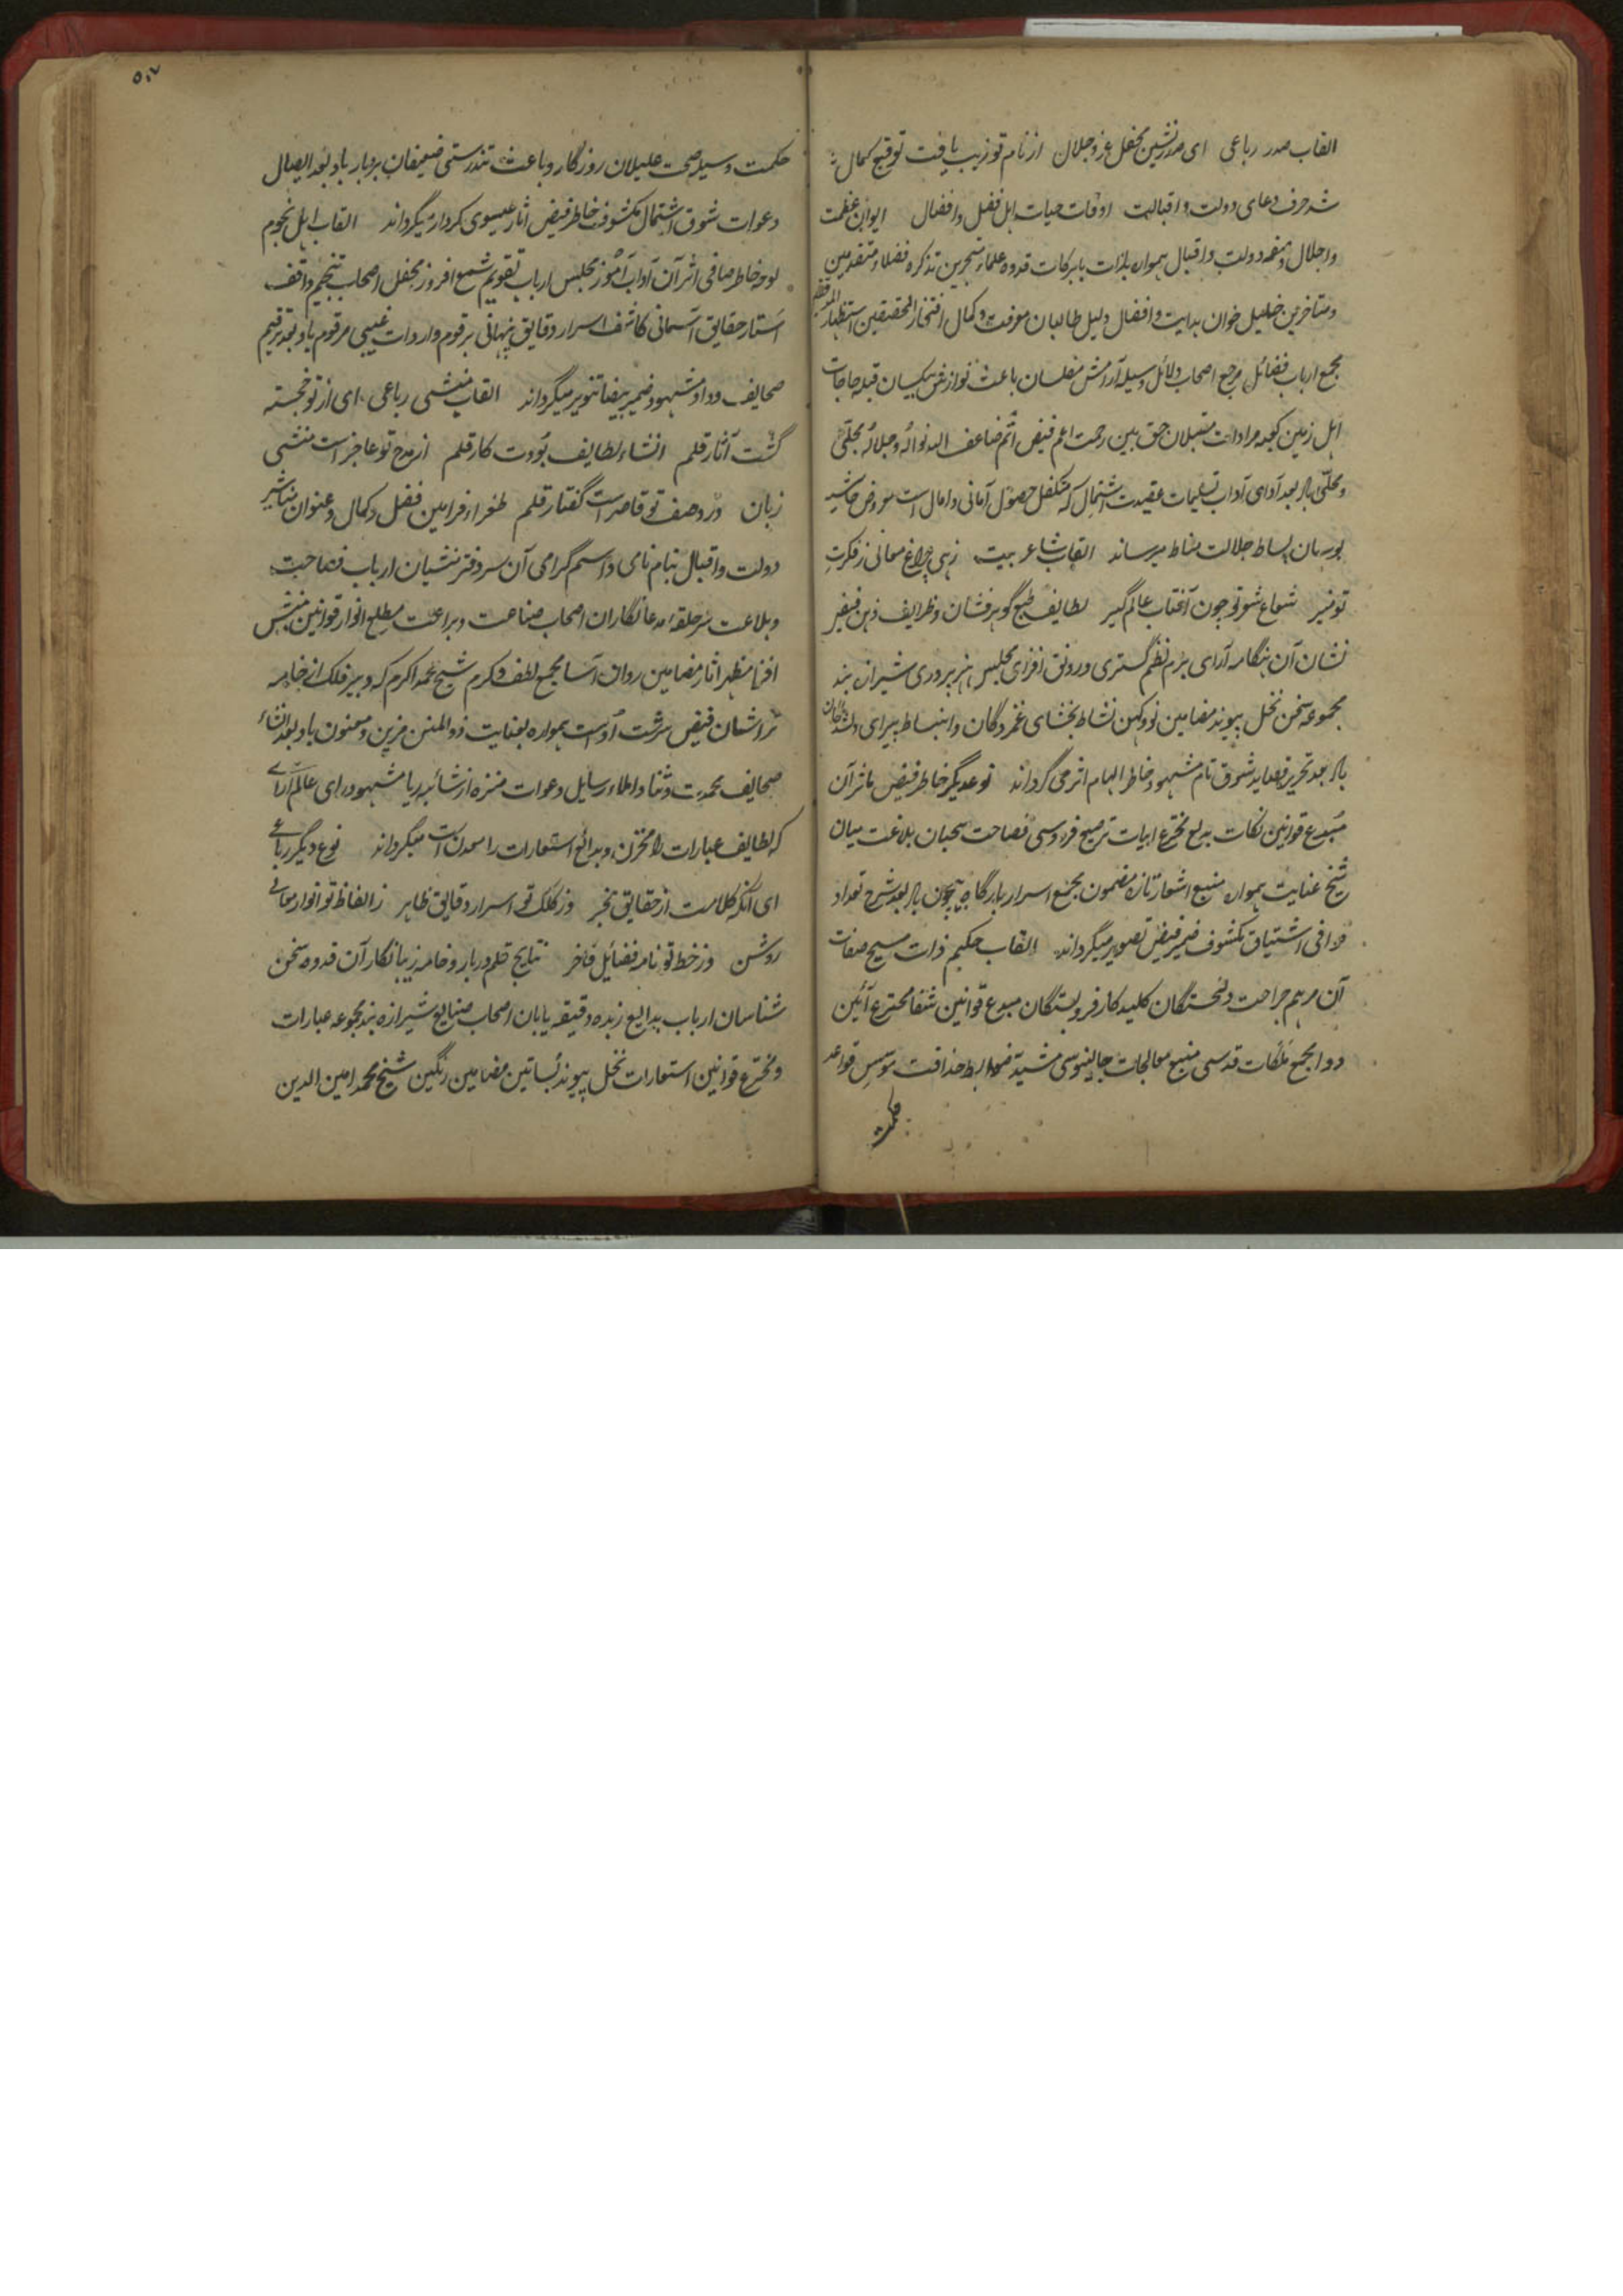 القاب صدر رباعی ای صدرنشین محفل عز و جلال از نام تو زیب یافت توقیع کمال
شد حرف دعای دولت و اقبالت اوقات حیات اهل فضل و افضال ایوان عظمت
و اجلال و دولت و اقبال همواره بذات بابرکات قدوه علماء متبحرین تذکره فضلاء متقدمین
و متاخرین خلیل خوان هدایت و افضال دلیل طالبان معرفت و کمال افتخار المحققین استظهار
مجمع ارباب فضائل مرجع اصحاب دلائل وسیله آرامش مفلسان باعث نوازش بیکسان قبله حاجات
اهل زمین کعبه مرادات مقبلان حق بین رحمت اعم فیض اتم ضاعف الله نواله و جلاله مجلی
و محلی باد بعد آدای آداب تسلیمات عقیدت اشتمال که متکفل حصول آمانی و امال است معروض حاشیه
بوسان بساط جلالت مناط میرساند القاب شاعر بیت زهی چراغ معانی ز فکرت
تو منیر شعاع شوق چون آفتاب عالم گیر لطایف طبع گوهرفشان و ظرایف ذهن فیض
نشان آن هنگامه آرای بزم نظم گستری و رونق افزای مجلس هنرپروری شیرازه بند
مجموعه سخن نخل پیوند مضامین نو و کهن نشاط بخشای غمزدگان و انبساط پیرای
باد بعد تحریر قصاید شوق تام مشهود خاطر الهام اثر می گرداند نوع دیگر خاطر فیض ماثر آن
مبدع قوانین نکات بدیع مخترع ابیات ترصیع فردوسی فصاحت سحبان بلاغت میان
شیخ عنایت همواره منبع اشعار تازه مضمون مجمع اسرار بارگاه بیچون باد بعد شرح تعداد
وافی اشتیاق مکشوف ضمیر فیض تصویر میگرداند القاب حکیم ذات مسیح صفات
آن مرهم جراحت دلخستگان کلید کار فروبستگان مبدع قوانین شفا مخترع آئین
دوا مجمع ملکات قدسی منبع معالجات جالینوسی مشید ضوابط حذاقت موسس قواعد
حکمت
۵۰۷
حکمت وسیله صحت علیلان روزگار و باعث تندرستی ضعیفان بردبار باد بعد ایصال
دعوات شوق اشتمال مکشوف خاطر فیض آثار عیسوی کردار میگرداند القاب اهل نجوم
لوحه خاطر صافی اثر آن آداب آموز مجلس ارباب تقویم شمع افروز محفل اصحاب تنجیم واقف
استار حقایق آسمانی کاشف اسرار دقایق پنهانی برقوم واردات غیبی مرقوم باد بعد ترقیم
صحایف وداد مشهود ضمیر بیضا تنویر میگرداند القاب منشی رباعی ای از تو خجسته
گشت آثار قلم انشاء لطایف بودت کار قلم از مدح تو عاجز است منشی
زبان در وصف تو قاصر است گفتار قلم طغرا فرامین فضل و کمال و عنوان مناشیر
دولت و اقبال بنام نامی و اسم گرامی آن سر دفتر منشیان ارباب فصاحت
و بلاغت سرحلقه مدعانگاران اصحاب صناعت و براعت مطلع انوار قوانین
افزا مظهر اثار مضامین رواق آسا مجمع لطف و کرم شیخ محمد اکرم که دبیر فلک از خامه
تراشان فیض سرشت اوست همواره بعنایت ذوالمنن مزین و معنون باد بعد انشاء
صحایف محمدت و ثنا و املاء رسایل دعوات منزه از شائبه ریا مشهود رای عالم آرای
که لطایف عبارات را مخزن و بدائع استعارات را معدنست میگرداند نوع دیگر رباعی
ای آنکه کلامت از حقایق مخبر وز کلک تو اسرار دقایق ظاهر ز الفاظ تو انوار معانی
روشن وز خط تو نامه فضائل فاخر نتایج قلم دربار و خامه زیبانگار آن قدوه سخن
شناسان ارباب بدایع زبده دقیقه یابان اصحاب صنایع شیرازه بند مجموعه عبارات
و مخترع قوانین استعارات نخل پیوند بساتین مضامین رنگین شیخ محمد امین الدین